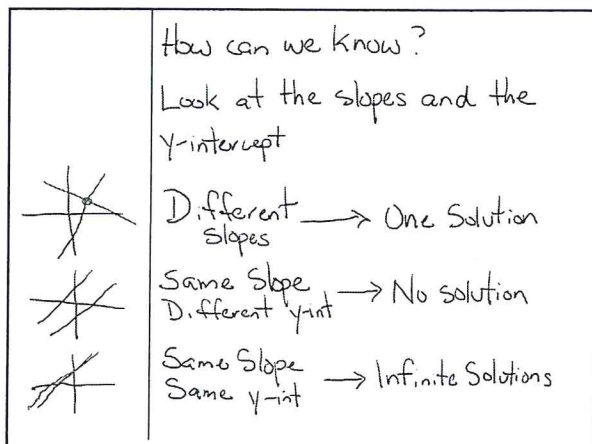 How can we know?
Look at the slopes and the
y-intercept
Different slopes → One Solution
Same Slope
Different y-int → No solution
Same Slope
Same y-int → Infinite Solutions